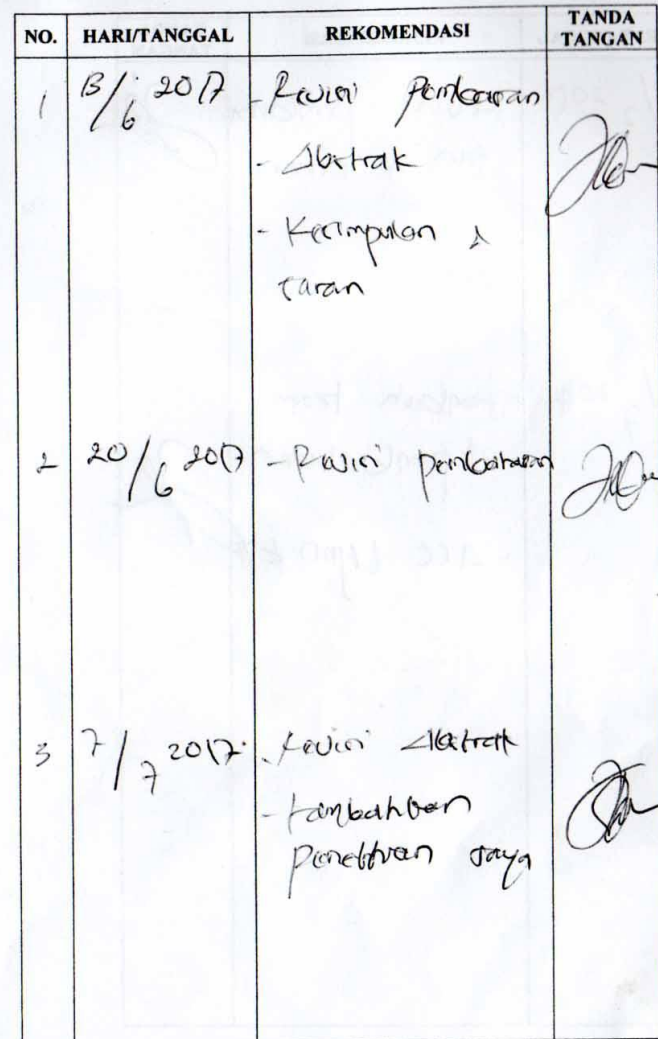 NO. HARI/TANGGAL REKOMENDASI TANDA TANGAN
1 13/6 2017 - Revisi Pembasaran
- Abstrak
- Kesimpulan &
saran
2 20/6 2017 - Revisi Pembahasan
3 7/7 2017 - Revisi Abstrak
- tambahkan
Penelitian saya